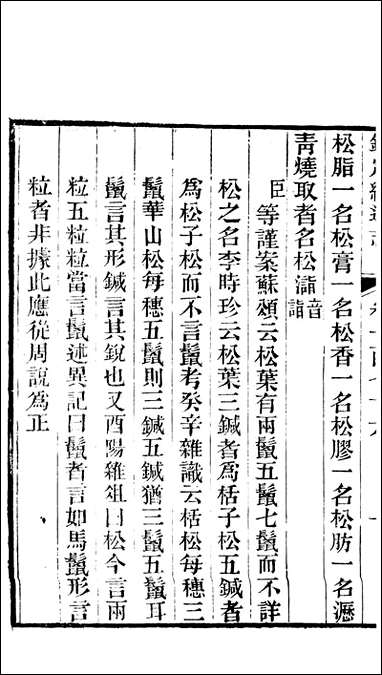 松脂一名松膏一名松香一名松膠一名松肪一名瀝
青燒取者名松㵽音諸
臣等謹案蘇頌云松葉有兩鬛五鬛七鬛而不詳
松之名李時珍云松葉三鍼者爲栝子松五鍼者
爲松子松而不言鬛考癸辛雜識云栝松每穗三
鬛華山松每穗五鬛則三鍼五鍼猶三鬛五鬛耳
鬛言其形鍼言其銳也又酉陽雜俎曰松今言兩
粒五粒粒當言鬛述異記曰鬛者言如馬鬛形言
粒者非據此應從周說爲正